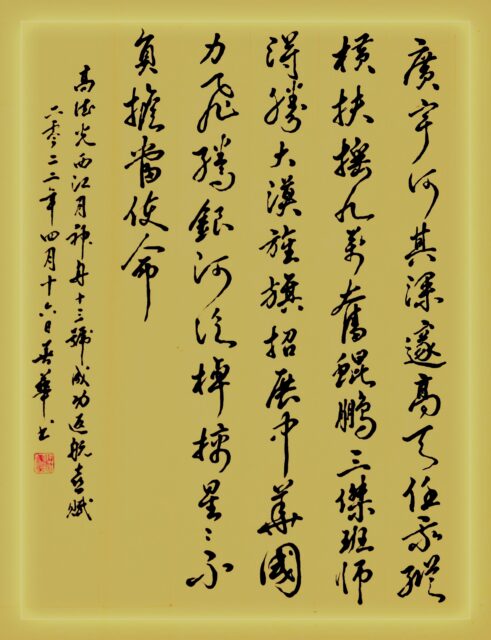 廣宇何其深邃高天任我縱
橫扶搖九萬奮鯤鵬三傑班師
得勝大漢旌旗招展中華國
力飛騰銀河泛棹摘星〻不
負擔當使命
高德光西江月神舟十三號成功返航喜賦
二零二二年四月十六日華書